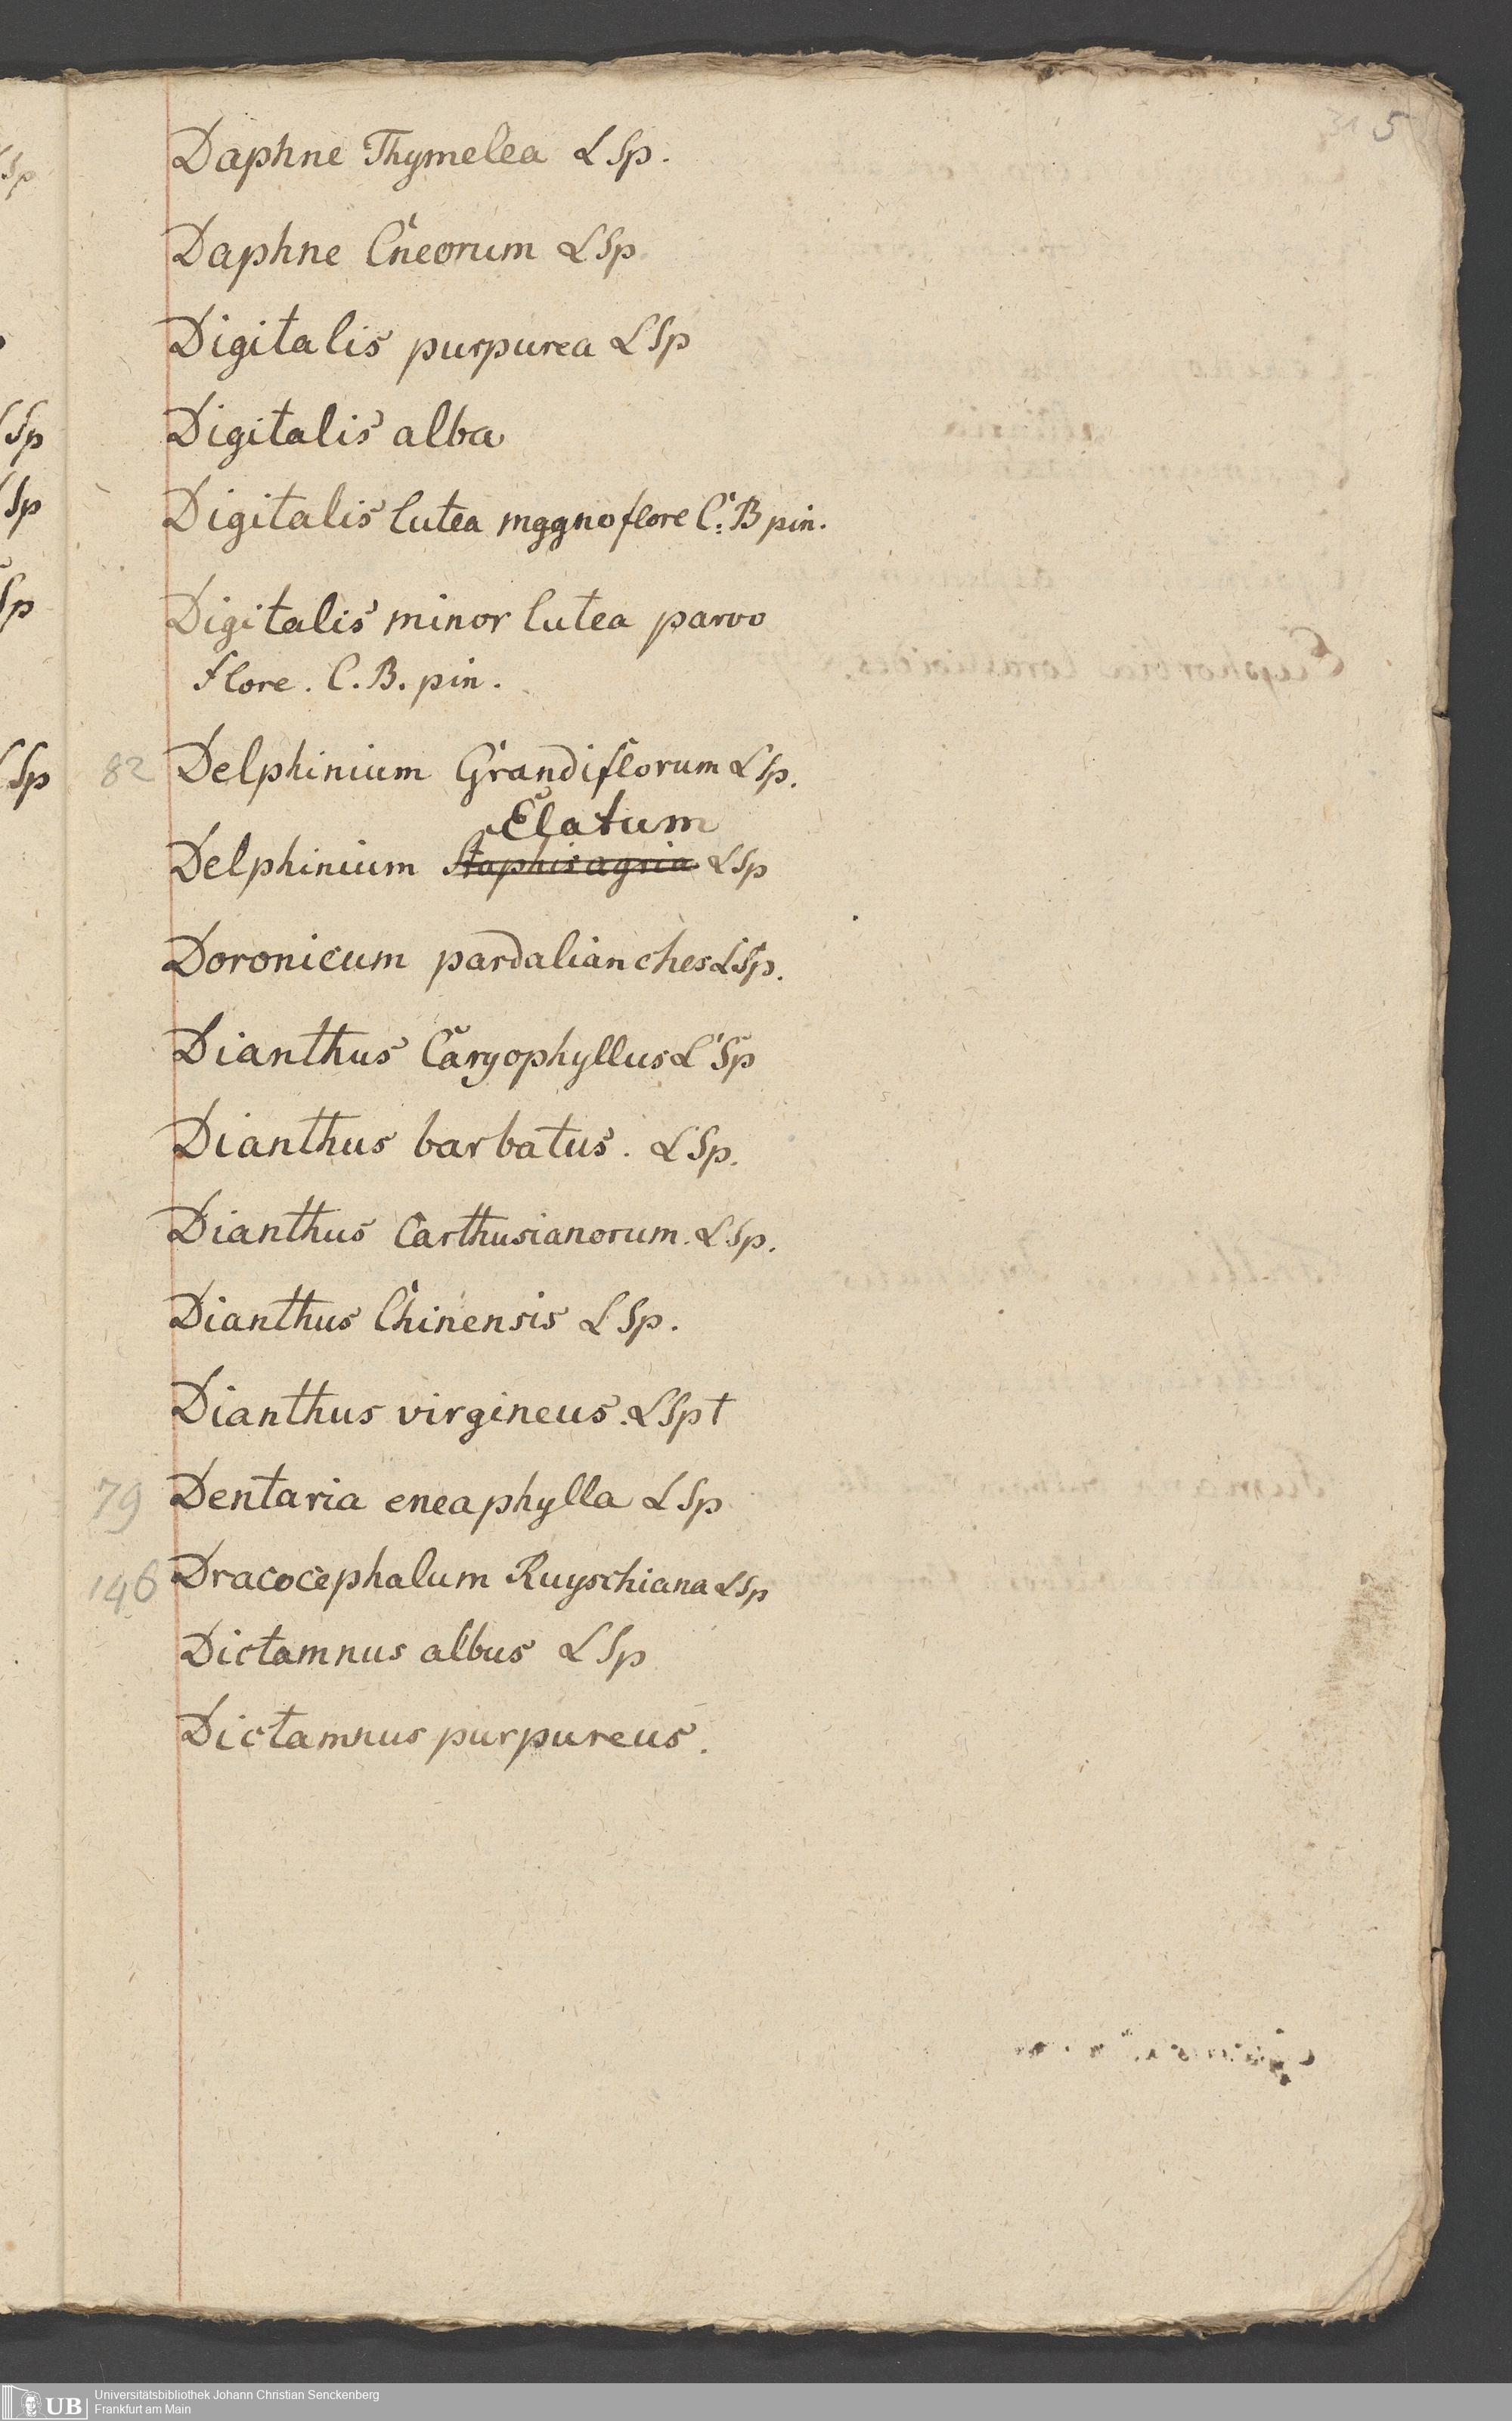 5
Daphne Thymelea L Sp.
Daphne Cneorum L Sp.
Digitalis purpurea L Sp
Digitalis alba
Digitalis lutea mggno flore C. B pin.
Digitalis minor lutea parvo
flore. C. B. pin.
82 Delphinium Grandiflorum L Sp.
Elatum
Delphinium Staphisagria L Sp
Doronicum pardalianches L Sp.
Dianthus Caryophyllus L Sp
Dianthus barbatus. L Sp.
Dianthus Carthusianorum. L Sp.
Dianthus Chinensis L Sp.
Dianthus virgineus. L Sp †
79 Dentaria eneaphylla L Sp
146 Dracocephalum Ruyschiana L Sp
Dictamnus albus L Sp
Dictamnus purpureus.
Sp
L Sp
L Sp
Sp
L Sp
UB Universitätsbibliothek Johann Christian Senckenberg
Frankfurt am Main